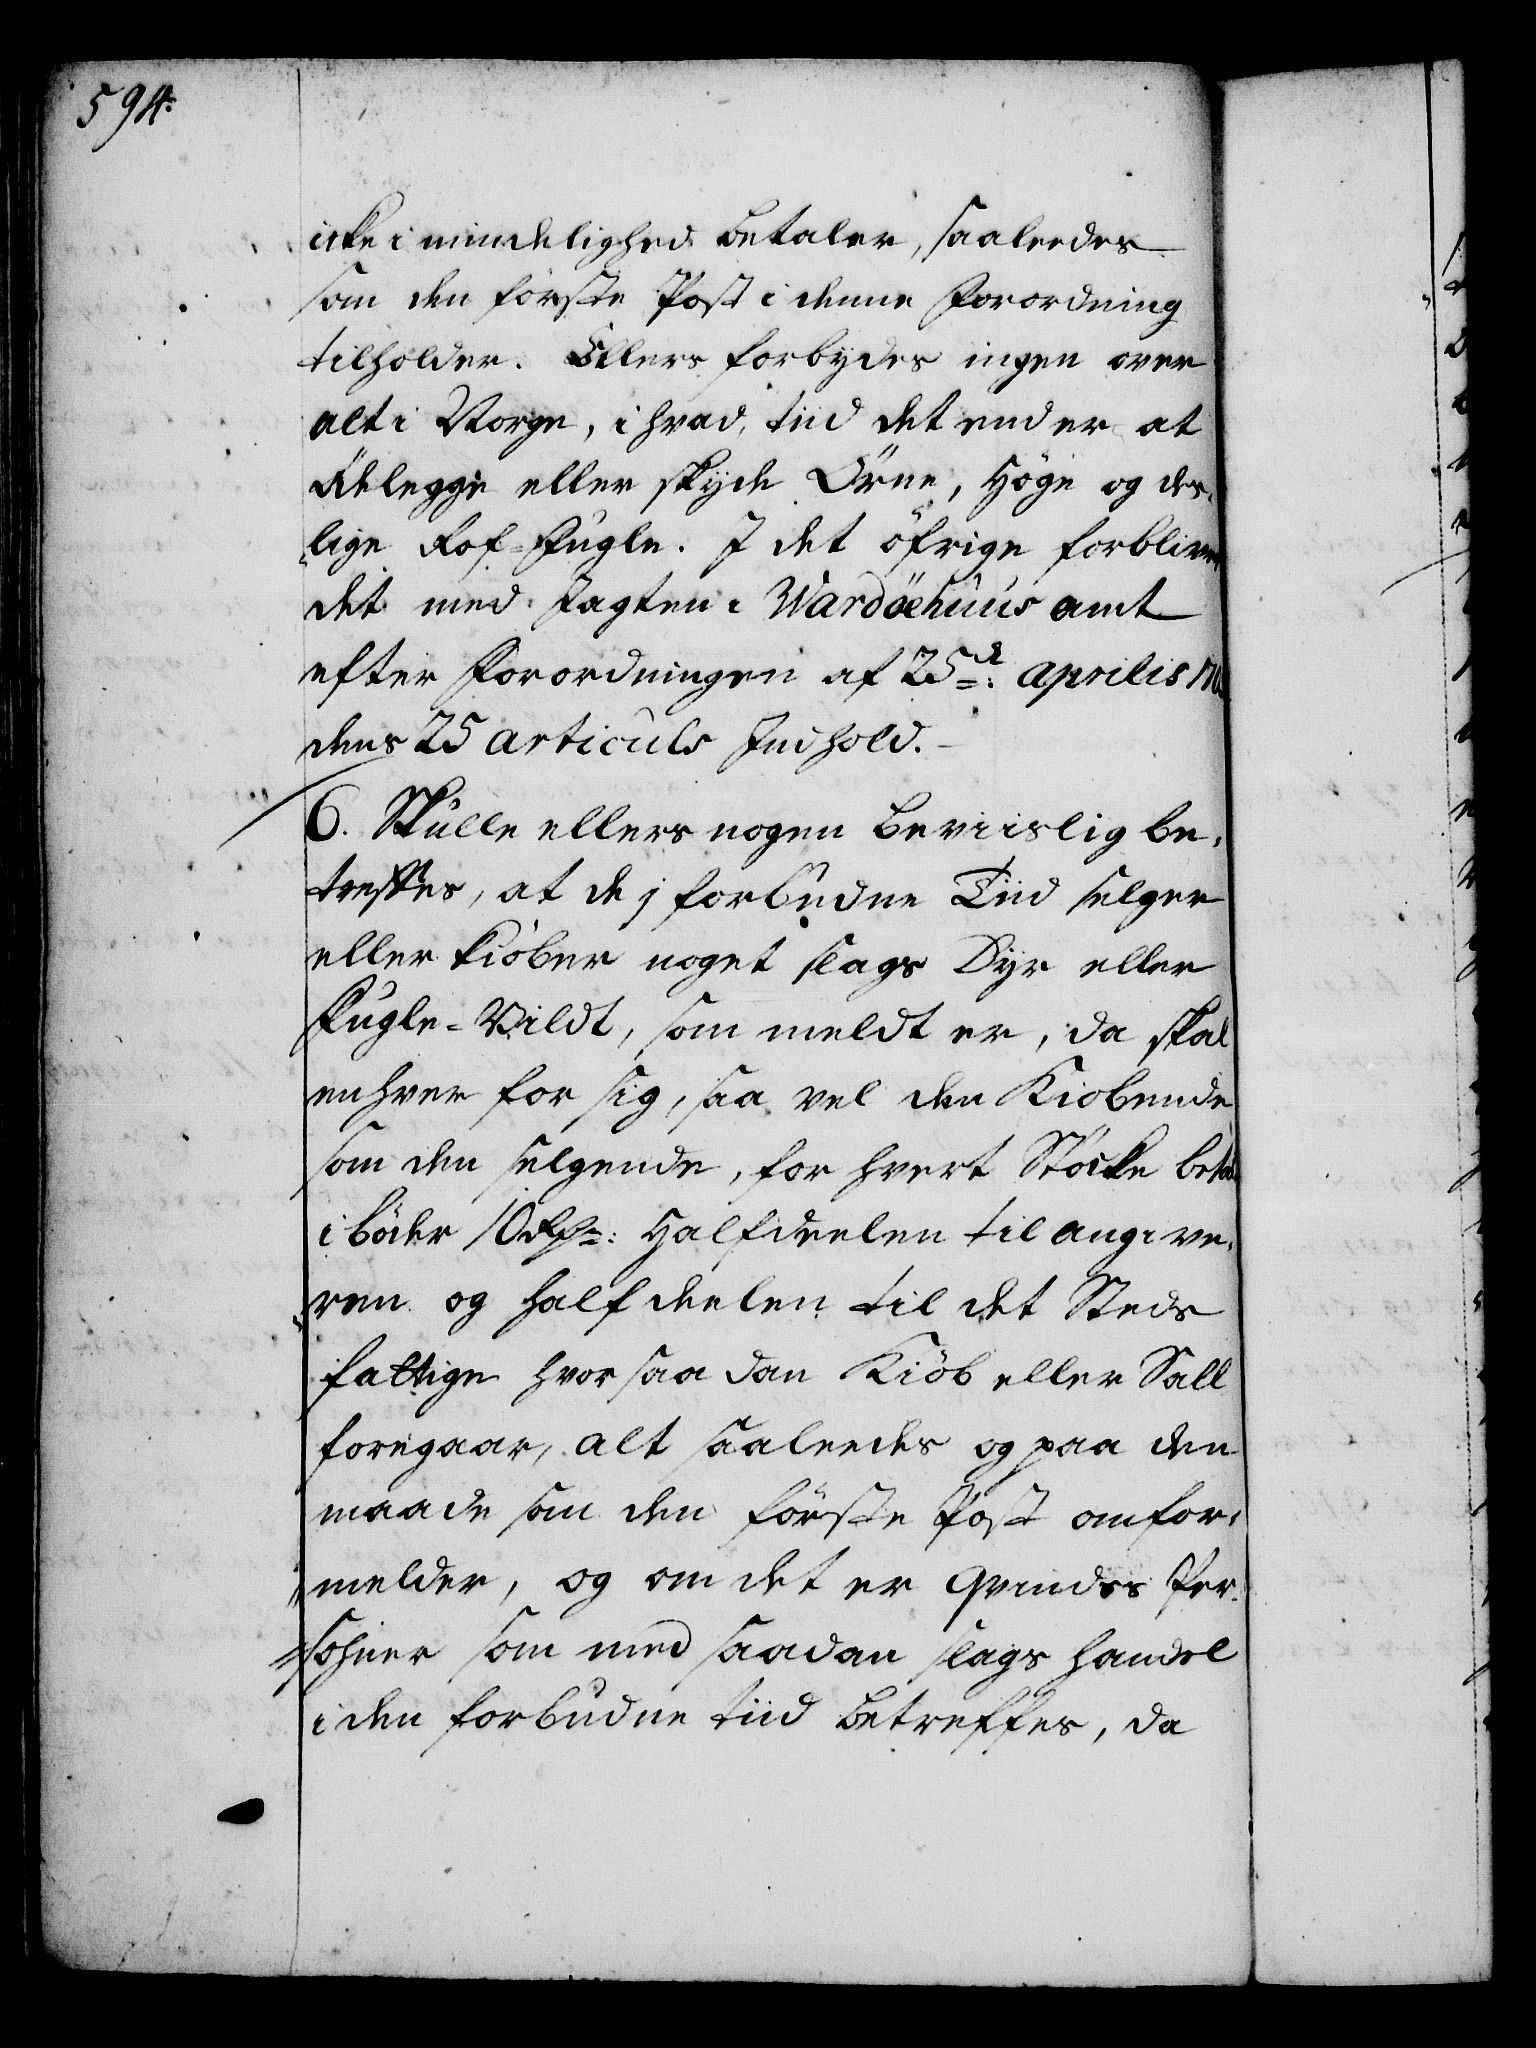 594.
icke i mindelighed betaler, saaleedes
som den förste Post i denne Forordning
tilholder. Ellers forbydes ingen over
alt i Norge, i hvad tiid det end er at
ödelegge eller skyde Örne, Höge og des-
lige Rof-Fugle. I det öfrige forbliver
det med Jagten i Wardöehuus amt
efter Forordningen af 25de: aprilis
dens 25 articuls Indhold.
6. Skulle ellers nogen beviislig be-
treffes, at de j forbudne Tiid selger
eller kiöber noget slags Dyr eller
Fugle-Vildt, som meldt er, da skal
enhver for sig, saa vel den Kiobende
som den selgende, for hvert Stöcke
i böder 10 Rdr: Halfdeelen til angive-
ren og halfdeelen til det Steds
fattige hvor saadan Kiöb eller Sall
foregaar, alt saaleedes og paa den
maade som den förste Post omfor-
melder, og om det er Qvindes Per-
sohner som med saadan slags handel
i den forbudne tiid betreffes, da